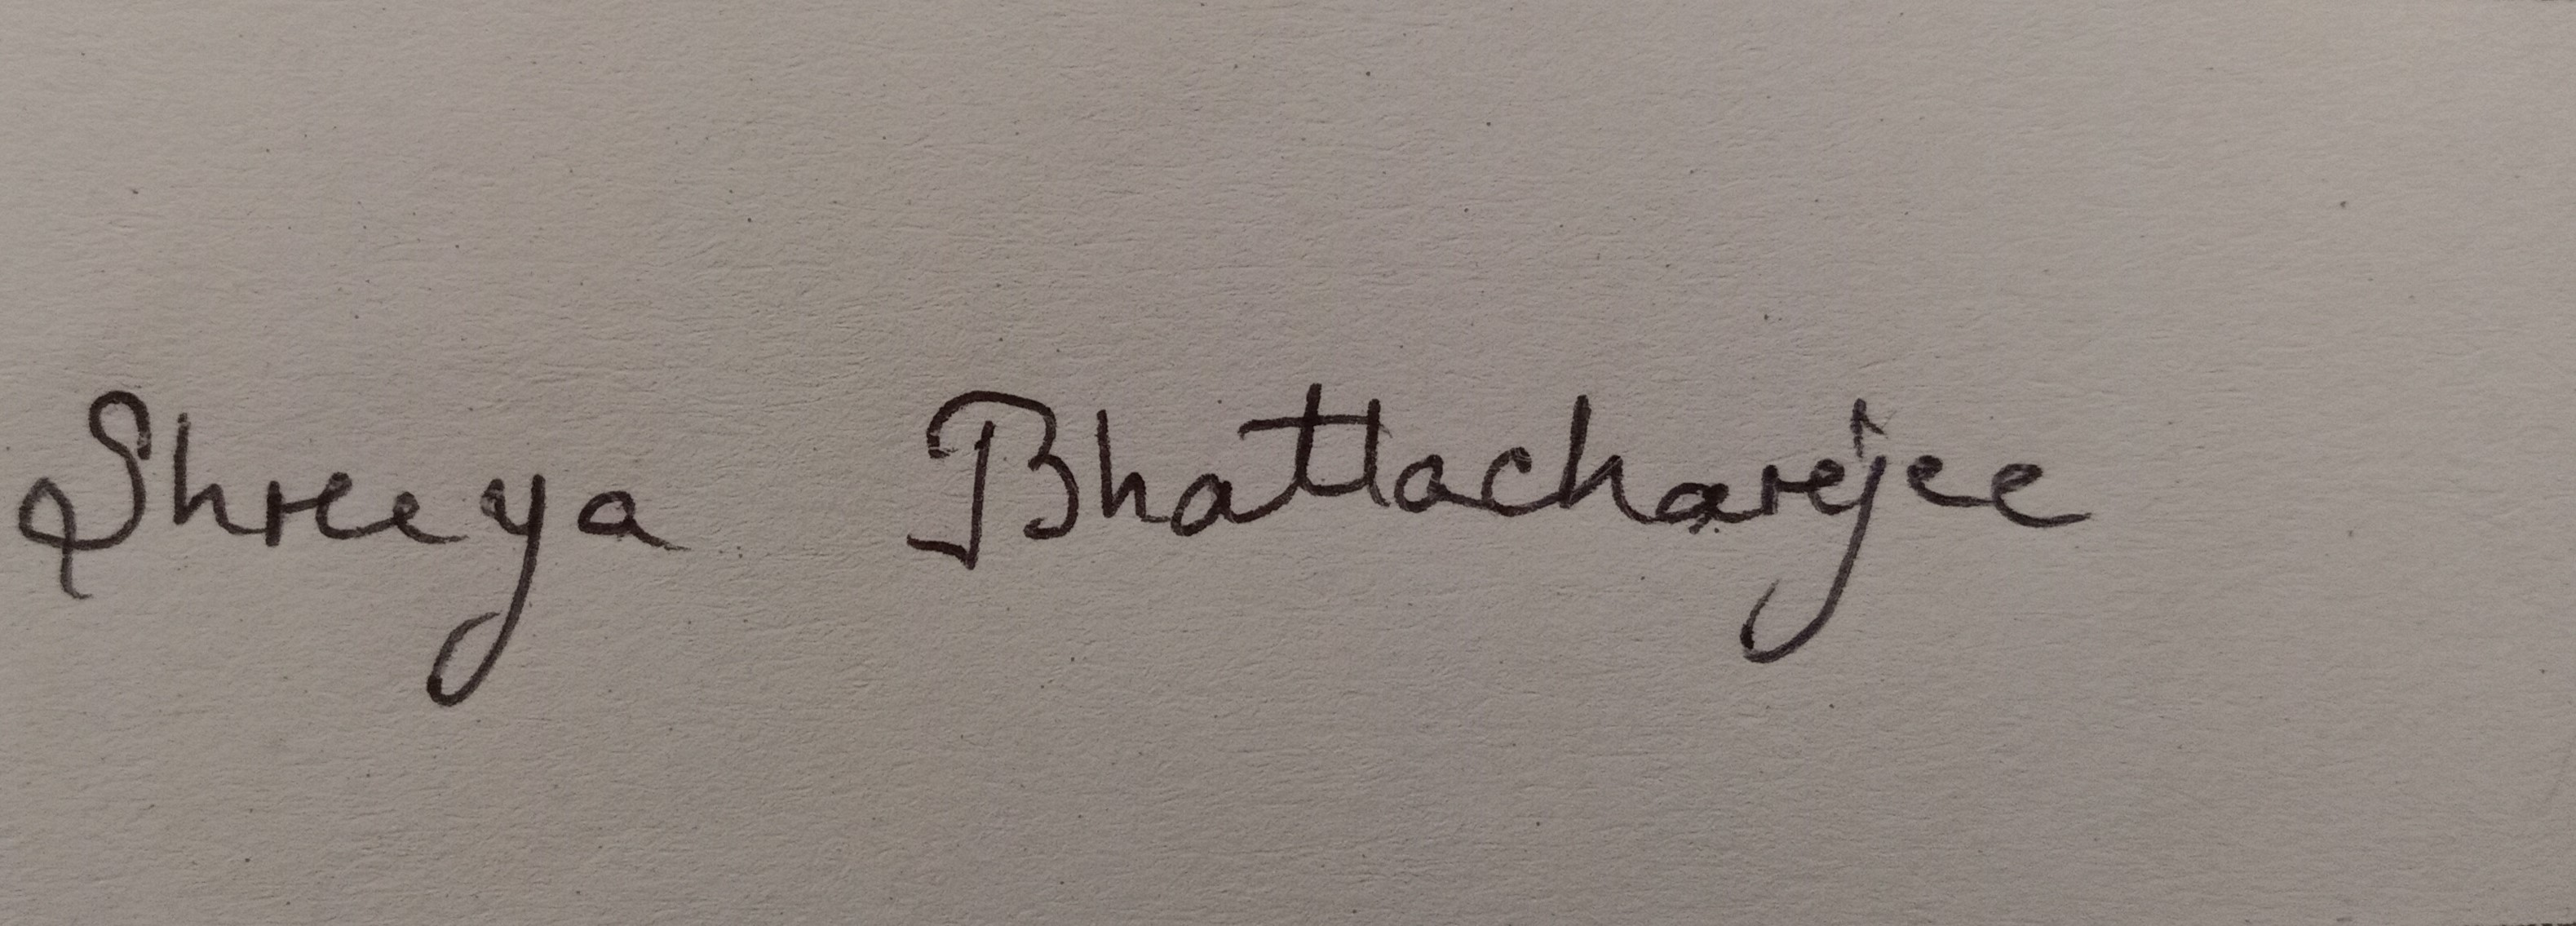 Shreeya Bhattacharejee